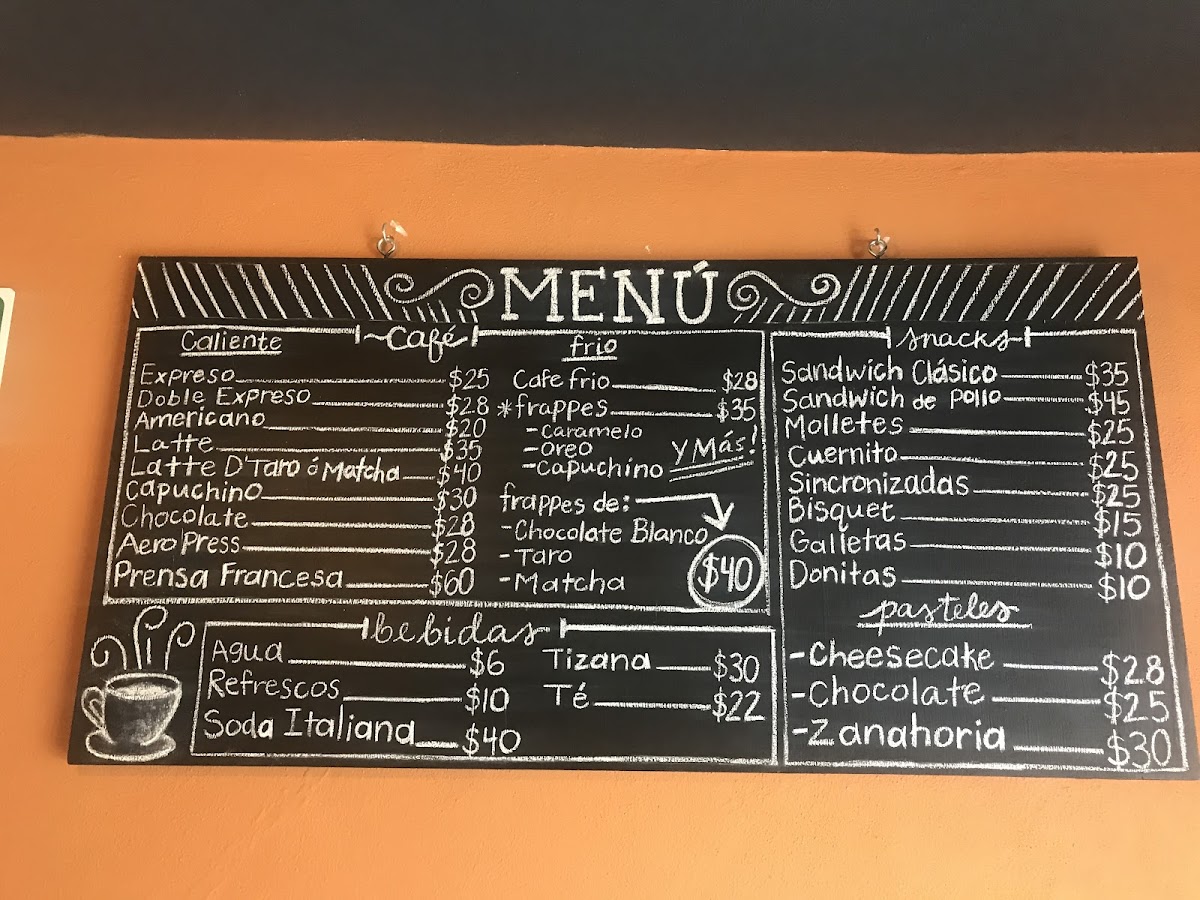 MENÚ
Café
Caliente
Expreso $25
Doble Expreso $28
Americano $20
Latte $35
Latte D'Taro ó Matcha $40
Capuchino $30
Chocolate $28
AeroPress $28
Prensa Francesa $60
frio
Cafe frio $28
*frappes $35
-Caramelo
-Oreo
-Capuchino
Y Más!
frappes de:
-Chocolate Blanco
-Taro
-Matcha
$40
bebidas
Agua $6
Refrescos $10
Soda Italiana $40
Tizana $30
Té $22
snacks
Sandwich Clásico $35
Sandwich de Pollo $45
Molletes $25
Cuernito $25
Sincronizadas $25
Bisquet $15
Galletas $10
Donitas $10
pasteles
-Cheesecake $28
-Chocolate $25
-Zanahoria $30